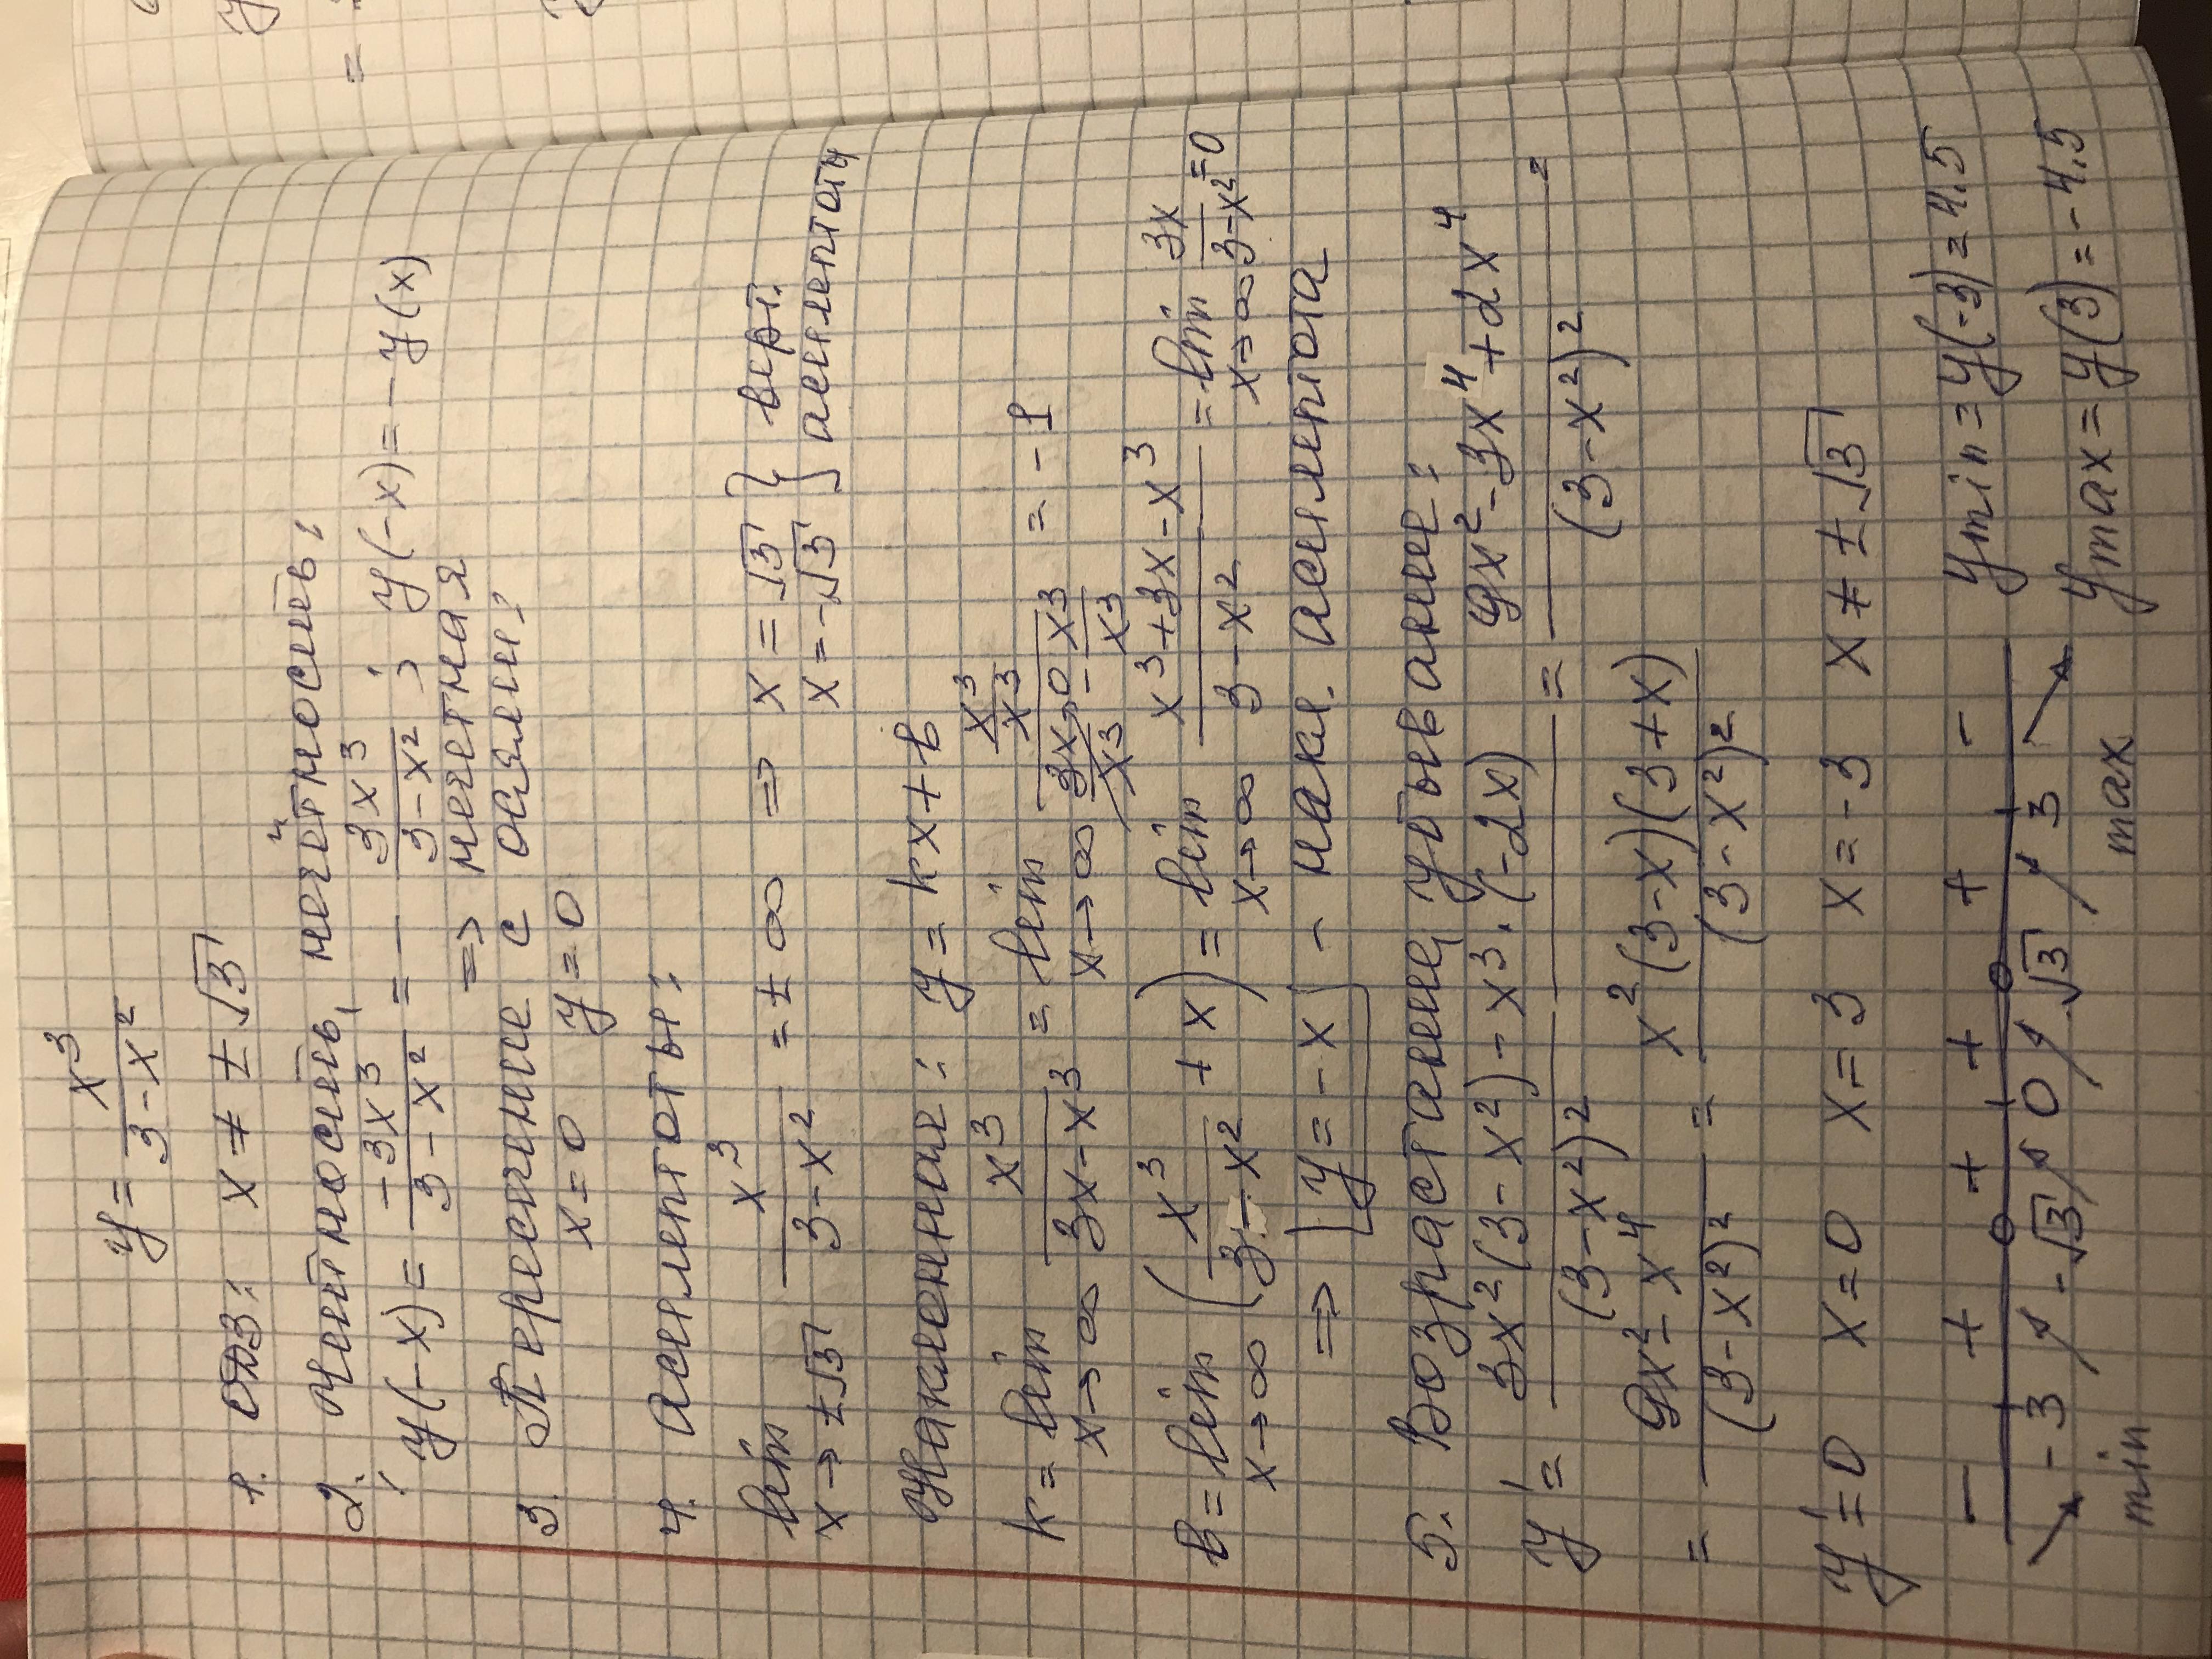 y = x³/(3-x²)
1. ОДЗ: x ≠ ±√3
2. Чётность, нечётность:
y(-x) = -3x³/(3-x²) = - 3x³/(3-x²) ; y(-x) = -y(x)
=> нечетная
3. Пересечение с осями:
x=0 y=0
4. Асимптоты:
lim x→±√3 x³/(3-x²) = ±∞ => x=√3 x=-√3 } верт. асимптоты
Наклонная: y = kx+b
k = lim x→∞ x³/(3x-x³) = lim x→∞ (x³/x³)/(3x/x³ →0 - x³/x³) = -1
b = lim x→∞ (x³/(3-x²) + x) = lim x→∞ (x³+3x-x³)/(3-x²) = lim x→∞ 3x/(3-x²) = 0
=> y = -x - накл. асимптота
5. Возрастание, убывание:
y' = (3x²(3-x²)-x³·(-2x))/(3-x²)² = (9x²-3x⁴+2x⁴)/(3-x²)² =
= (9x²-x⁴)/(3-x²)² = x²(3-x)(3+x)/(3-x²)²
y'=0 x=0 x=3 x=-3 x≠±√3
- + + + + -
-3 -√3 0 √3 3
min max
ymin = y(-3) = 4.5
ymax = y(3) = -4.5